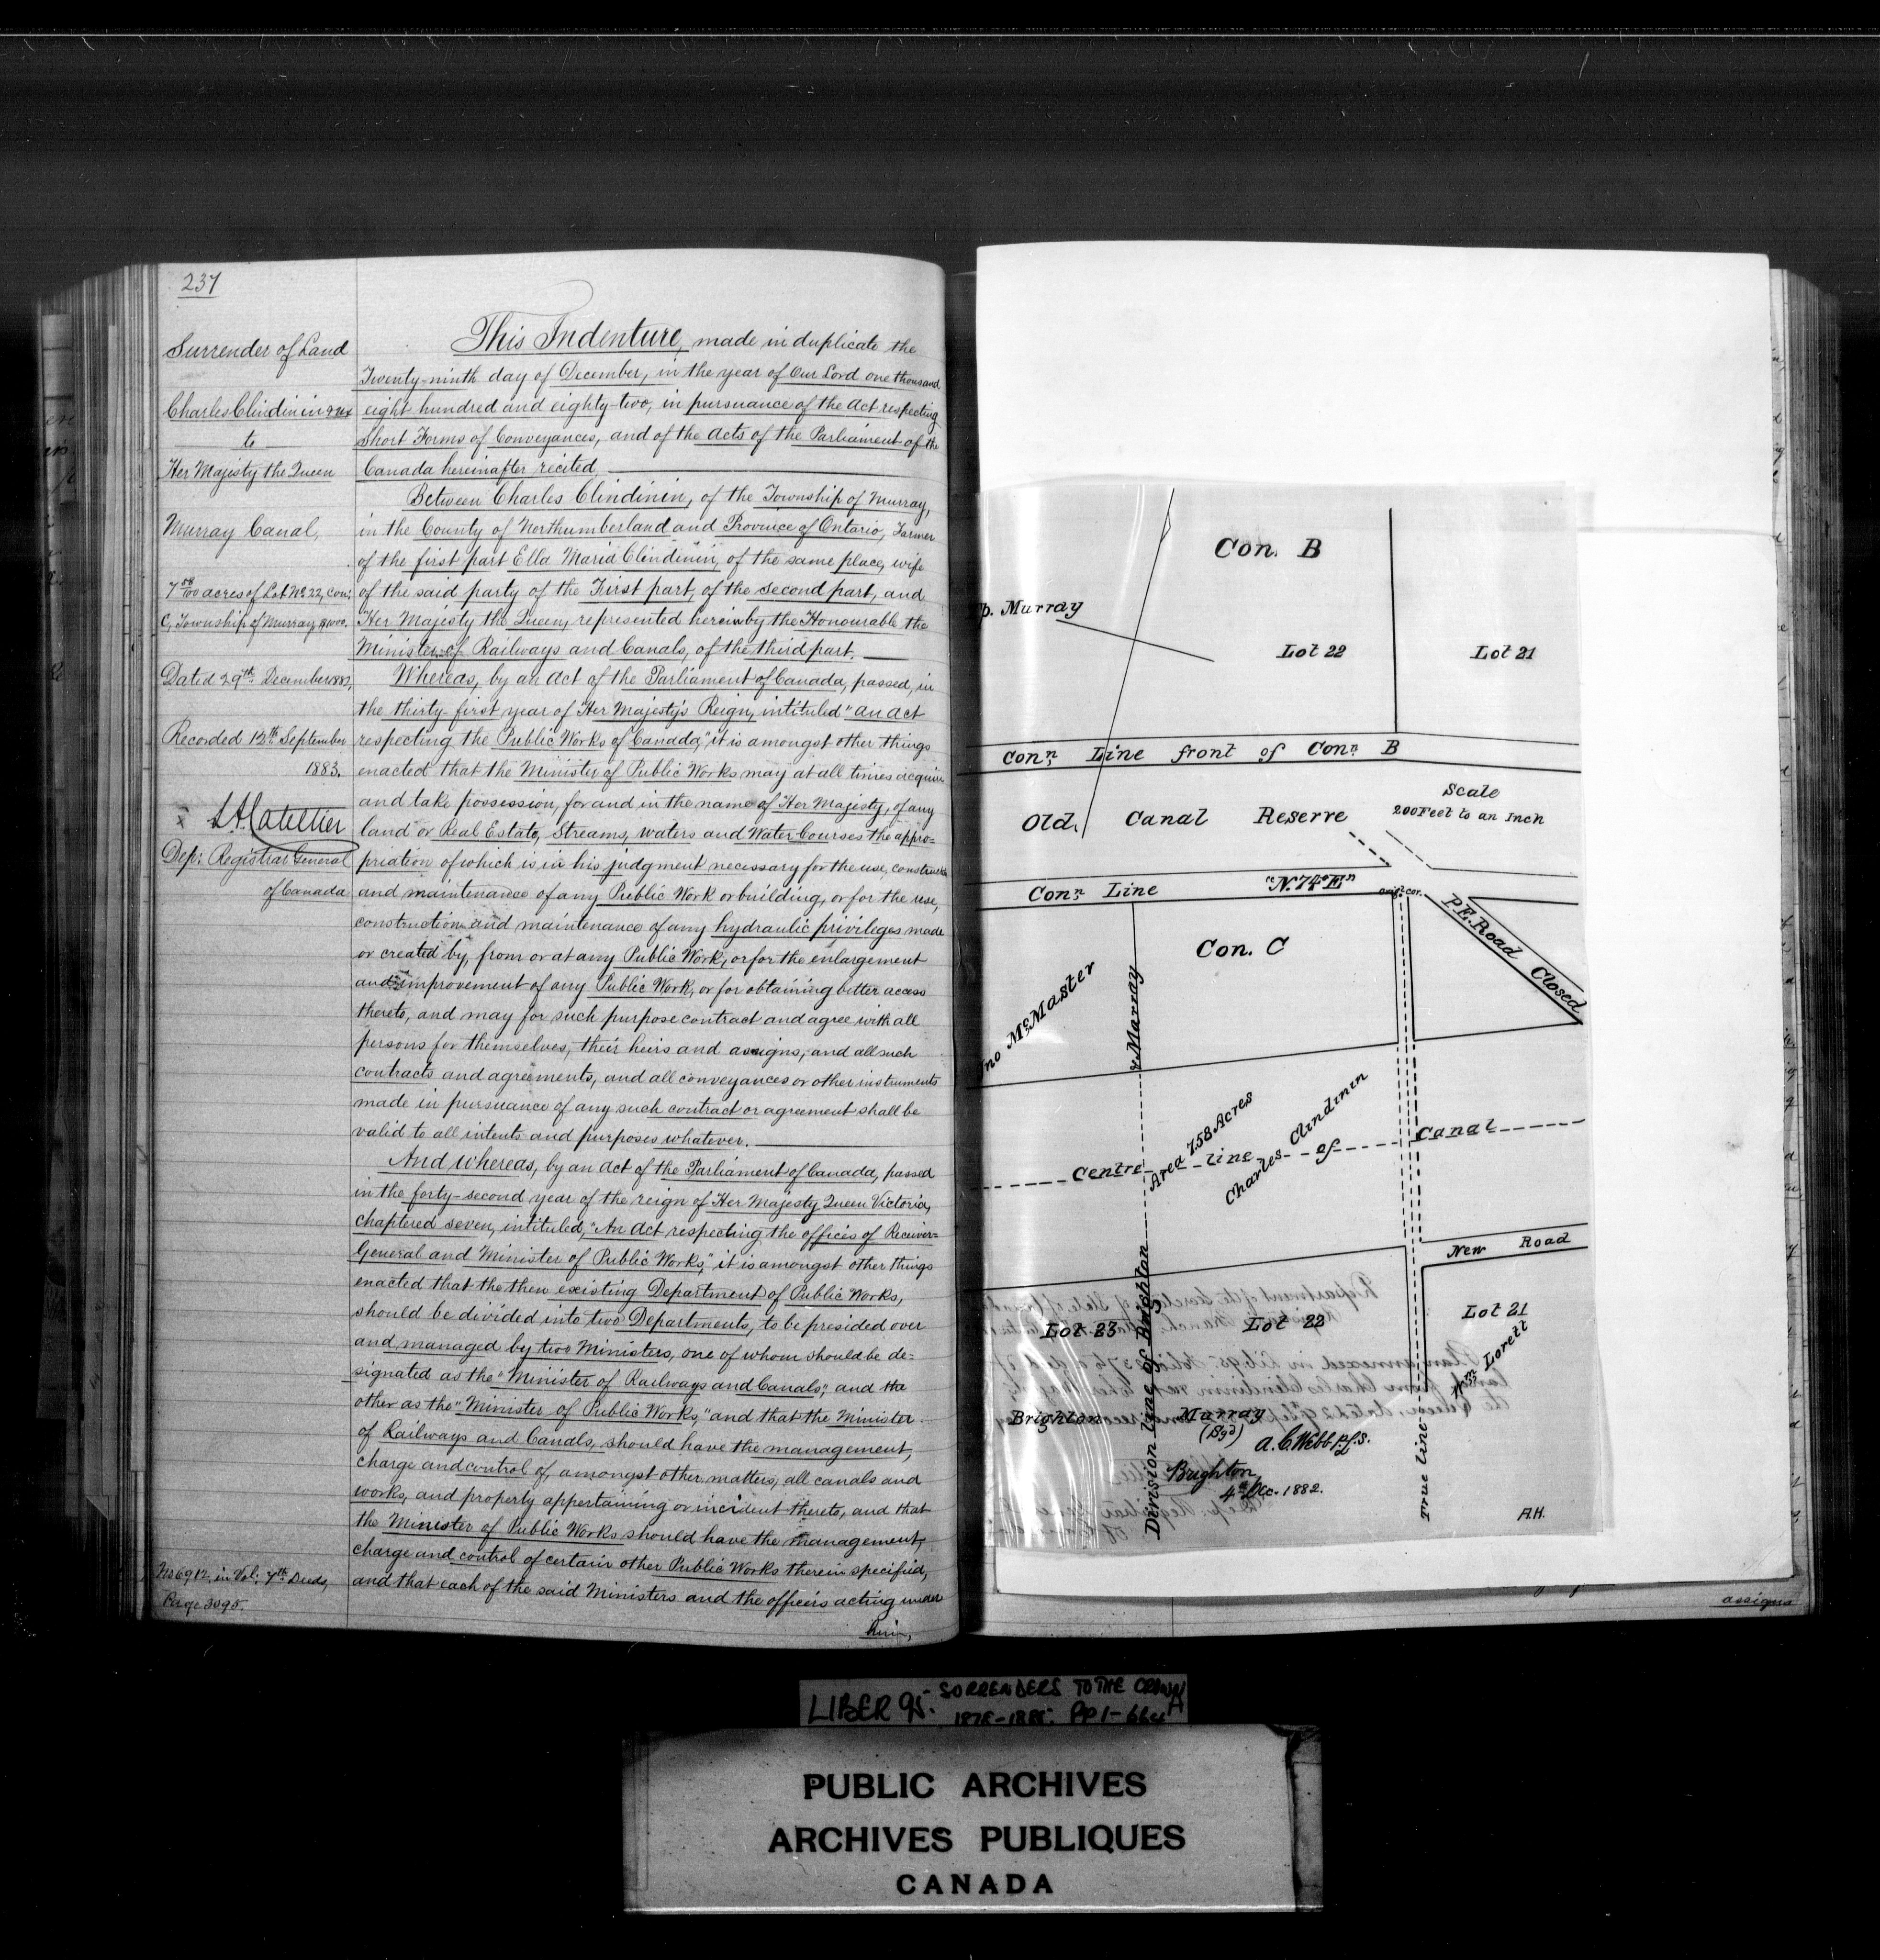 237
Surrender of Land
Charles Clindinin & ux
to
Her Majesty the Queen
Murray Canal,
7 58/100 acres of Lot No 22, Con:
C, Township of Murray, $1000.
Dated 29th December 1882,
Recorded 12th September
1883.
L. A. Catellier
Dep: Registrar General
of Canada
No 6912, in Vol: 7th Deeds,
Page 3095.
This Indenture, made in duplicate the
Twenty-ninth day of December, in the year of Our Lord one thousand
eight hundred and eighty-two, in pursuance of the Act respecting
Short Forms of Conveyances, and of the Acts of the Parliament of the
Canada hereinafter recited,
Between Charles Clindinin, of the Township of Murray,
in the County of Northumberland and Province of Ontario, Farmer
of the first part Ella Maria Clindinin, of the same place, wife
of the said party of the First part, of the second part, and
Her Majesty the Queen, represented herein by the Honourable the
Minister of Railways and Canals, of the third part.
Whereas, by an Act of the Parliament of Canada, passed, in
the thirty-first year of Her Majesty's Reign, intituled "An Act
respecting the Public Works of Canada," it is amongst other things
enacted that the Minister of Public Works may at all times acquire
and take possession, for and in the name of Her Majesty, of any
land or Real Estate, Streams, waters and Water Courses the appro=
priation of which is in his judgment necessary for the use, construction
and maintenance of any Public Work or building, or for the use,
construction and maintenance of any hydraulic privileges made
or created by, from or at any Public Work, or for the enlargement
and improvement of any Public Work, or for obtaining better access
thereto, and may for such purpose contract and agree with all
persons for themselves, their heirs and assigns, and all such
contracts and agreements, and all conveyances or other instruments
made in pursuance of any such contract or agreement shall be
valid to all intents and purposes whatever.
And whereas, by an Act of the Parliament of Canada, passed
in the forty-second year of the reign of Her Majesty Queen Victoria,
chaptered seven, intituled, "An Act respecting the offices of Receiver=
General and Minister of Public Works," it is amongst other things
enacted that the then existing Department of Public Works,
should be divided into two Departments, to be presided over
and managed by two Ministers, one of whom should be de=
signated as the "Minister of Railways and Canals," and the
other as the "Minister of Public Works," and that the Minister
of Railways and Canals, should have the management,
charge and control of, amongst other matters, all canals and
works, and property appertaining or incident thereto, and that
the Minister of Public Works should have the management,
charge and control of certain other Public Works therein specified,
and that each of the said Ministers and the officers acting under
him,
Con. B
Tp. Murray
Lot 22
Lot 21
Conn. Line front of Conn. B
Scale
200 Feet to an Inch
Old Canal Reserve
Conn. Line
"N. 74° E"
P.E. Road Closed
Con. C
Jno McMaster
& Murray
Area 7.58 Acres
Charles Clindinin
Centre line of Canal
New Road
Lot 23
Lot 22
Lot 21
Wm Lovett
Brighton
Murray
Division Line of Brighton
(Sgd)
A. C. Webb P.L.S.
Brighton,
4th Dec. 1882.
True Line
A.H.
assigns
LIBER 95. SURRENDERS TO THE CROWN
PUBLIC ARCHIVES
ARCHIVES PUBLIQUES
CANADA